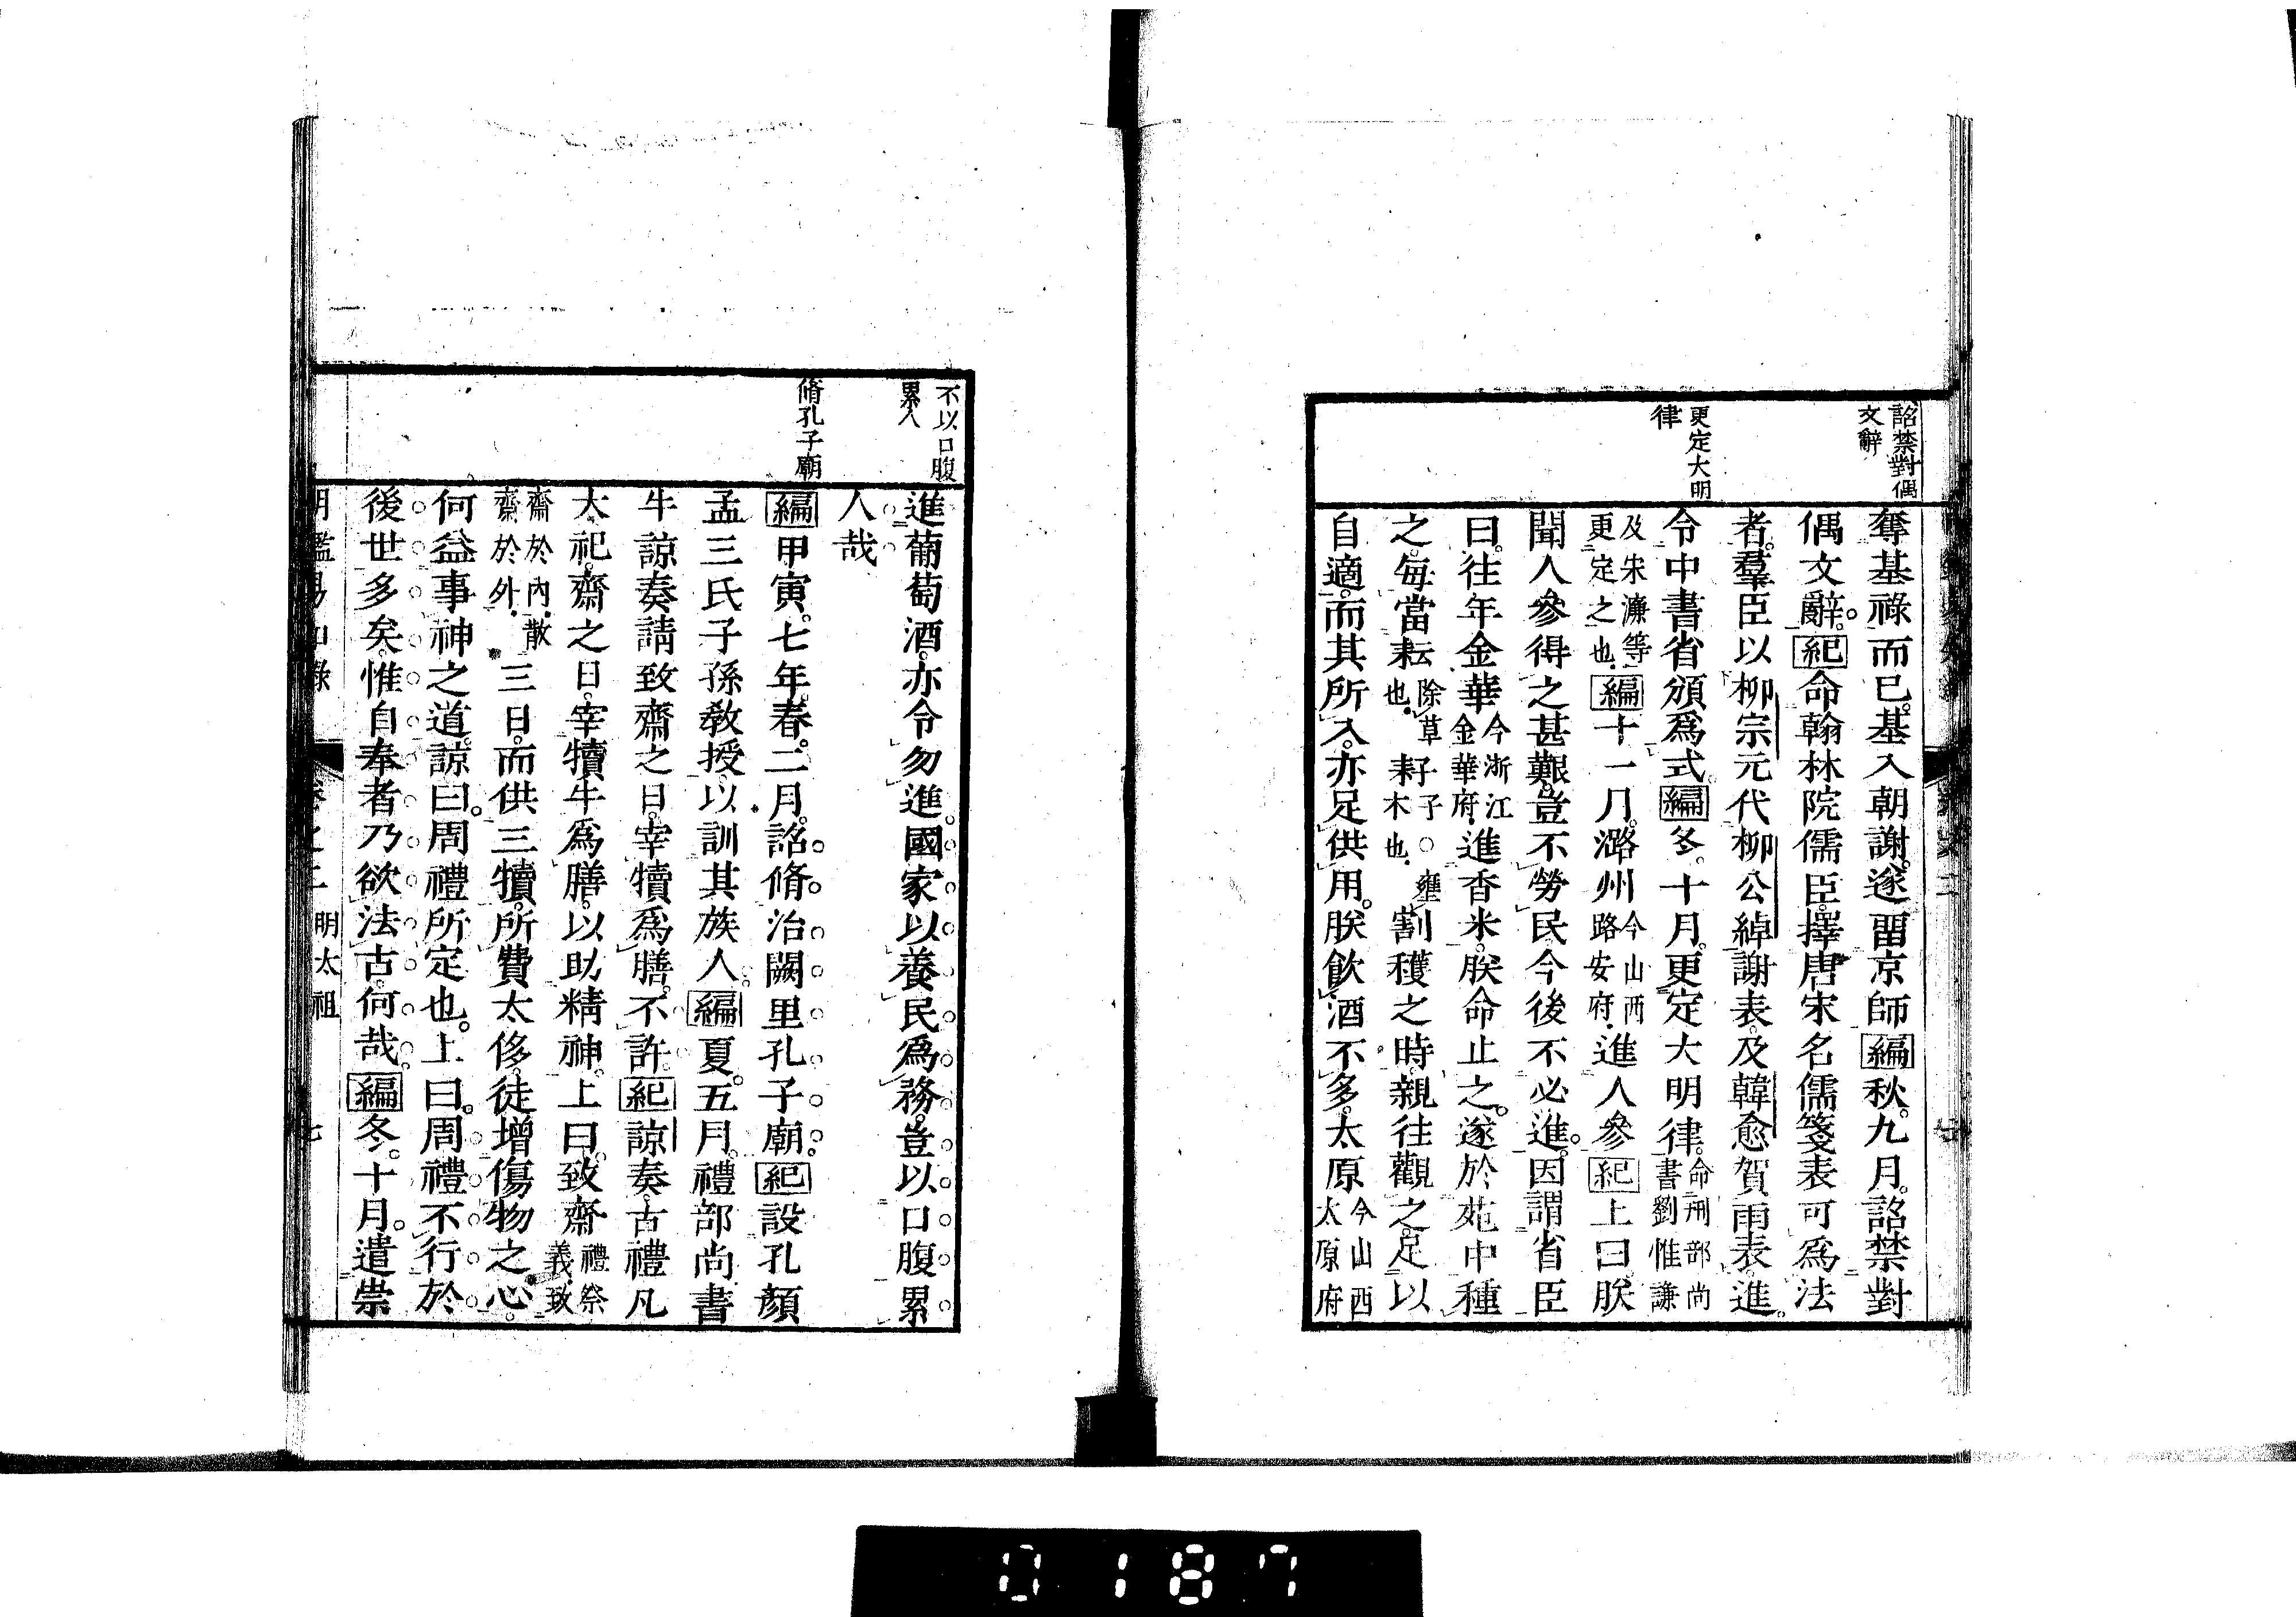 詔禁對偶
文辭
更定大明
律
奪基祿而已。基入朝謝。遂留京師編秋。九月。詔禁對
偶文辭。紀命翰林院儒臣。擇唐宋名儒箋表可爲法
者。羣臣以柳宗元代柳公綽謝表。及韓愈賀雨表。進。
令中書省頒爲式。編冬。十月。更定大明律。命刑部尚
書劉惟謙
及宋濂等
更定之也。編十一月。潞州今山西
路安府。進人參紀上曰。朕
聞人參得之甚艱。豈不勞民今後不必進。因謂省臣
曰。往年金華今浙江
金華府。進香米。朕命止之。遂於苑中種
之。每當耘除草
也。耔子子○壅
禾木也。割穫之時。親往觀之。足以
自適。而其所入。亦足供用。朕飲酒不多。太原今山西
太原府
不以口腹
累人
脩孔子廟
進葡萄酒。亦令勿進。國家以養民爲務。豈以口腹累
人哉
編甲寅。七年。春。二月。詔。脩治闕里孔子廟。紀設孔顏
孟三氏子孫敎授。以訓其族人。編夏。五月。禮部尚書
牛諒奏請致齋之日。宰犢爲膳。不許紀諒奏。古禮凡
大祀。齋之日。宰犢牛爲膳。以助精神。上曰。致齋禮祭
義。致
齋於內。散
齋於外。三日。而供三犢。所費太侈。徒增傷物之心。
何益事神之道。諒曰。周禮所定也。上曰。周禮不行於
後世多矣。惟自奉者乃欲法古。何哉。編冬。十月。遣崇
明太祖 七